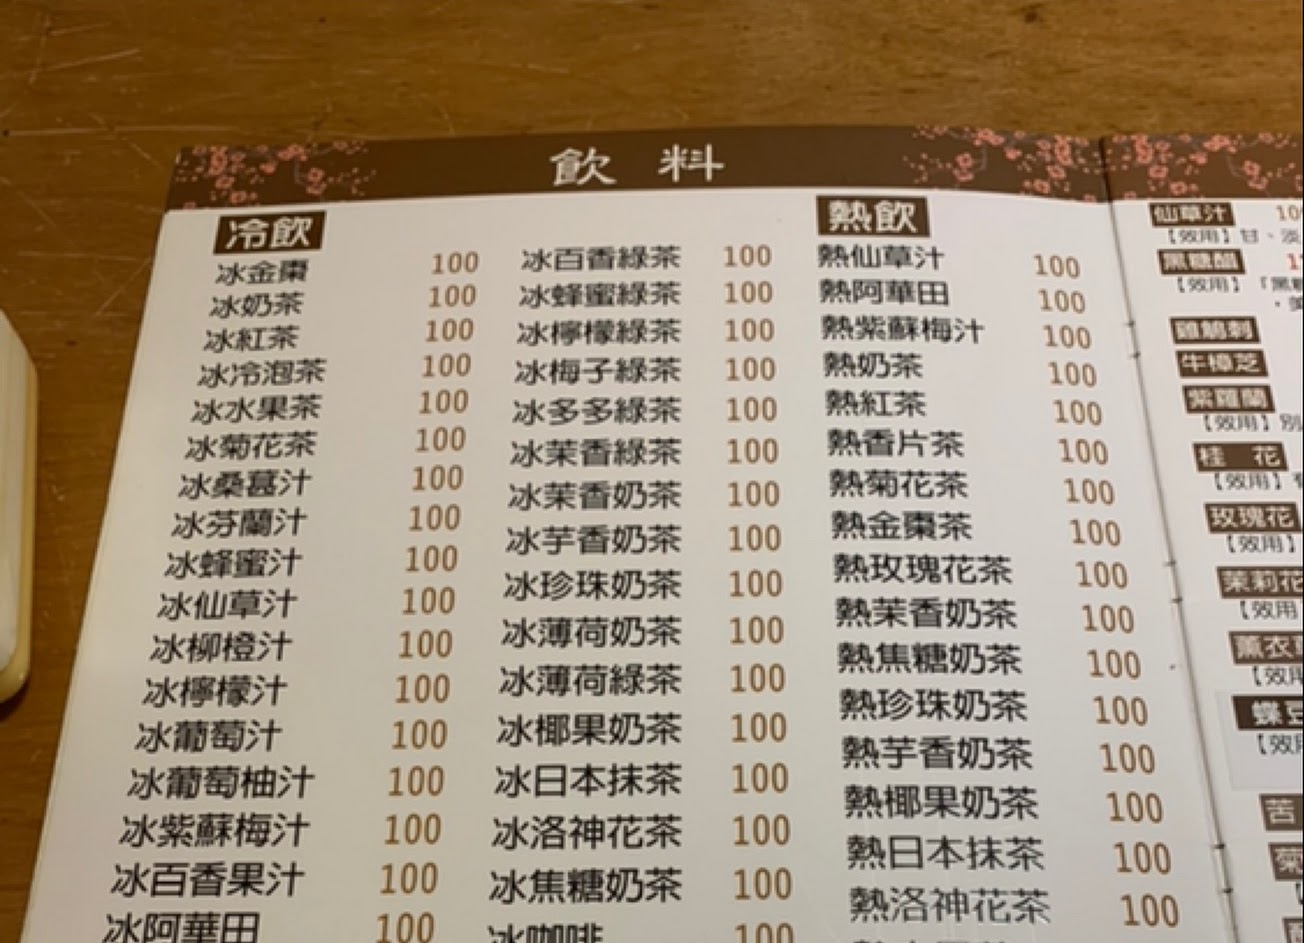 飲料
冷飲
冰金棗 100
冰奶茶 100
冰紅茶 100
冰冷泡茶 100
冰水果茶 100
冰菊花茶 100
冰桑葚汁 100
冰芬蘭汁 100
冰蜂蜜汁 100
冰仙草汁 100
冰柳橙汁 100
冰檸檬汁 100
冰葡萄汁 100
冰葡萄柚汁 100
冰紫蘇梅汁 100
冰百香果汁 100
冰阿華田 100
冰百香綠茶 100
冰蜂蜜綠茶 100
冰檸檬綠茶 100
冰梅子綠茶 100
冰多多綠茶 100
冰茉香綠茶 100
冰茉香奶茶 100
冰芋香奶茶 100
冰珍珠奶茶 100
冰薄荷奶茶 100
冰薄荷綠茶 100
冰椰果奶茶 100
冰日本抹茶 100
冰洛神花茶 100
冰焦糖奶茶 100
冰咖啡 100
熱飲
熱仙草汁 100
熱阿華田 100
熱紫蘇梅汁 100
熱奶茶 100
熱紅茶 100
熱香片茶 100
熱菊花茶 100
熱金棗茶 100
熱玫瑰花茶 100
熱茉香奶茶 100
熱焦糖奶茶 100
熱珍珠奶茶 100
熱芋香奶茶 100
熱椰果奶茶 100
熱日本抹茶 100
熱洛神花茶 100
仙草汁 10
【效用】甘、淡
黑糖醋 1
【效用】「黑
牛樟芝
紫羅蘭
【效用】別
桂花
【效用】
玫瑰花
【效用】
茉莉花
【效用
薰衣
【效用
蝶豆
【效
苦